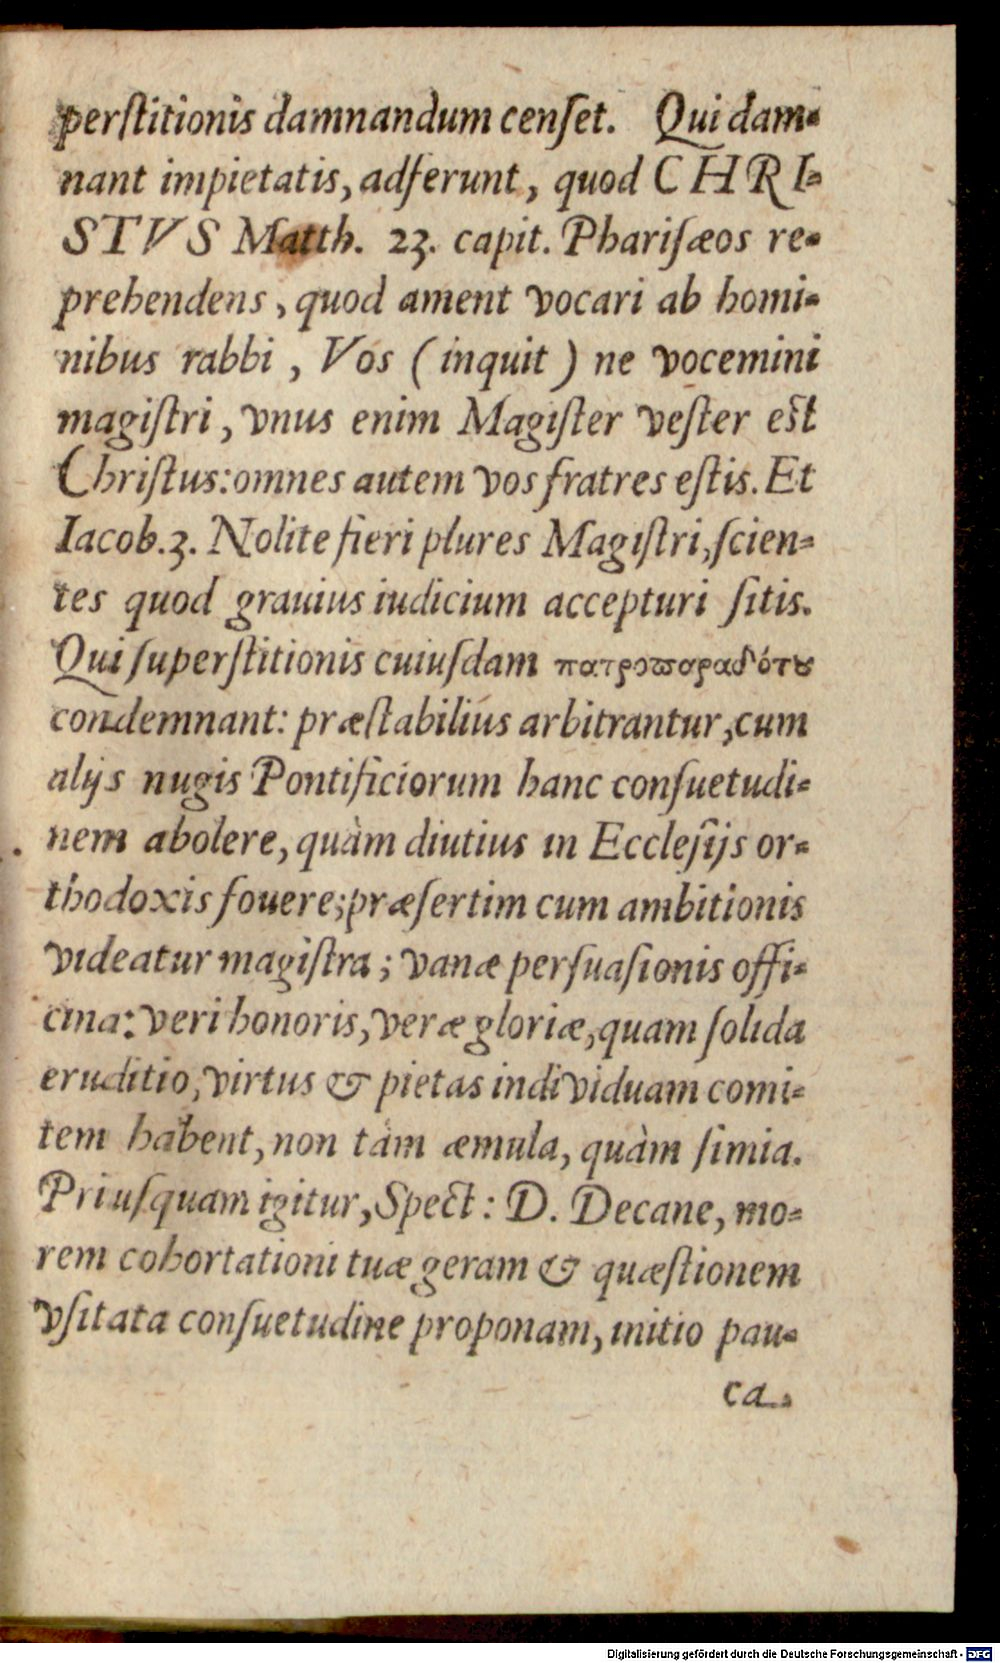 perſtitionis damnandum cenſet. Qui dam-
nant impietatis, adferunt, quod CHRI-
STVS Matth. 23. capit. Phariſæos re-
prehendens, quod ament vocari ab homi-
nibus rabbi, Vos (inquit) ne vocemini
magiſtri, vnus enim Magiſter veſter eſt
Chriſtus: omnes autem vos fratres eſtis. Et
Iacob. 3. Nolite fieri plures Magiſtri, ſcien-
tes quod grauius iudicium accepturi ſitis.
Qui ſuperſtitionis cuiuſdam πατροϖαραδότȣ
condemnant: præſtabilius arbitrantur, cum
alijs nugis Pontificiorum hanc conſuetudi-
nem abolere, quàm diutius in Eccleſijs or-
thodoxis fouere; præſertim cum ambitionis
videatur magiſtra; vanæ perſuaſionis offi-
cina: veri honoris, veræ gloriæ, quam ſolida
eruditio, virtus & pietas individuam comi-
tem habent, non tàm æmula, quàm ſimia.
Priuſquam igitur, Spect: D. Decane, mo-
rem cohortationi tuæ geram & quæſtionem
vſitata conſuetudine proponam, initio pau-
ca-
Digitalisierung gefördert durch die Deutsche Forschungsgemeinschaft - DFG